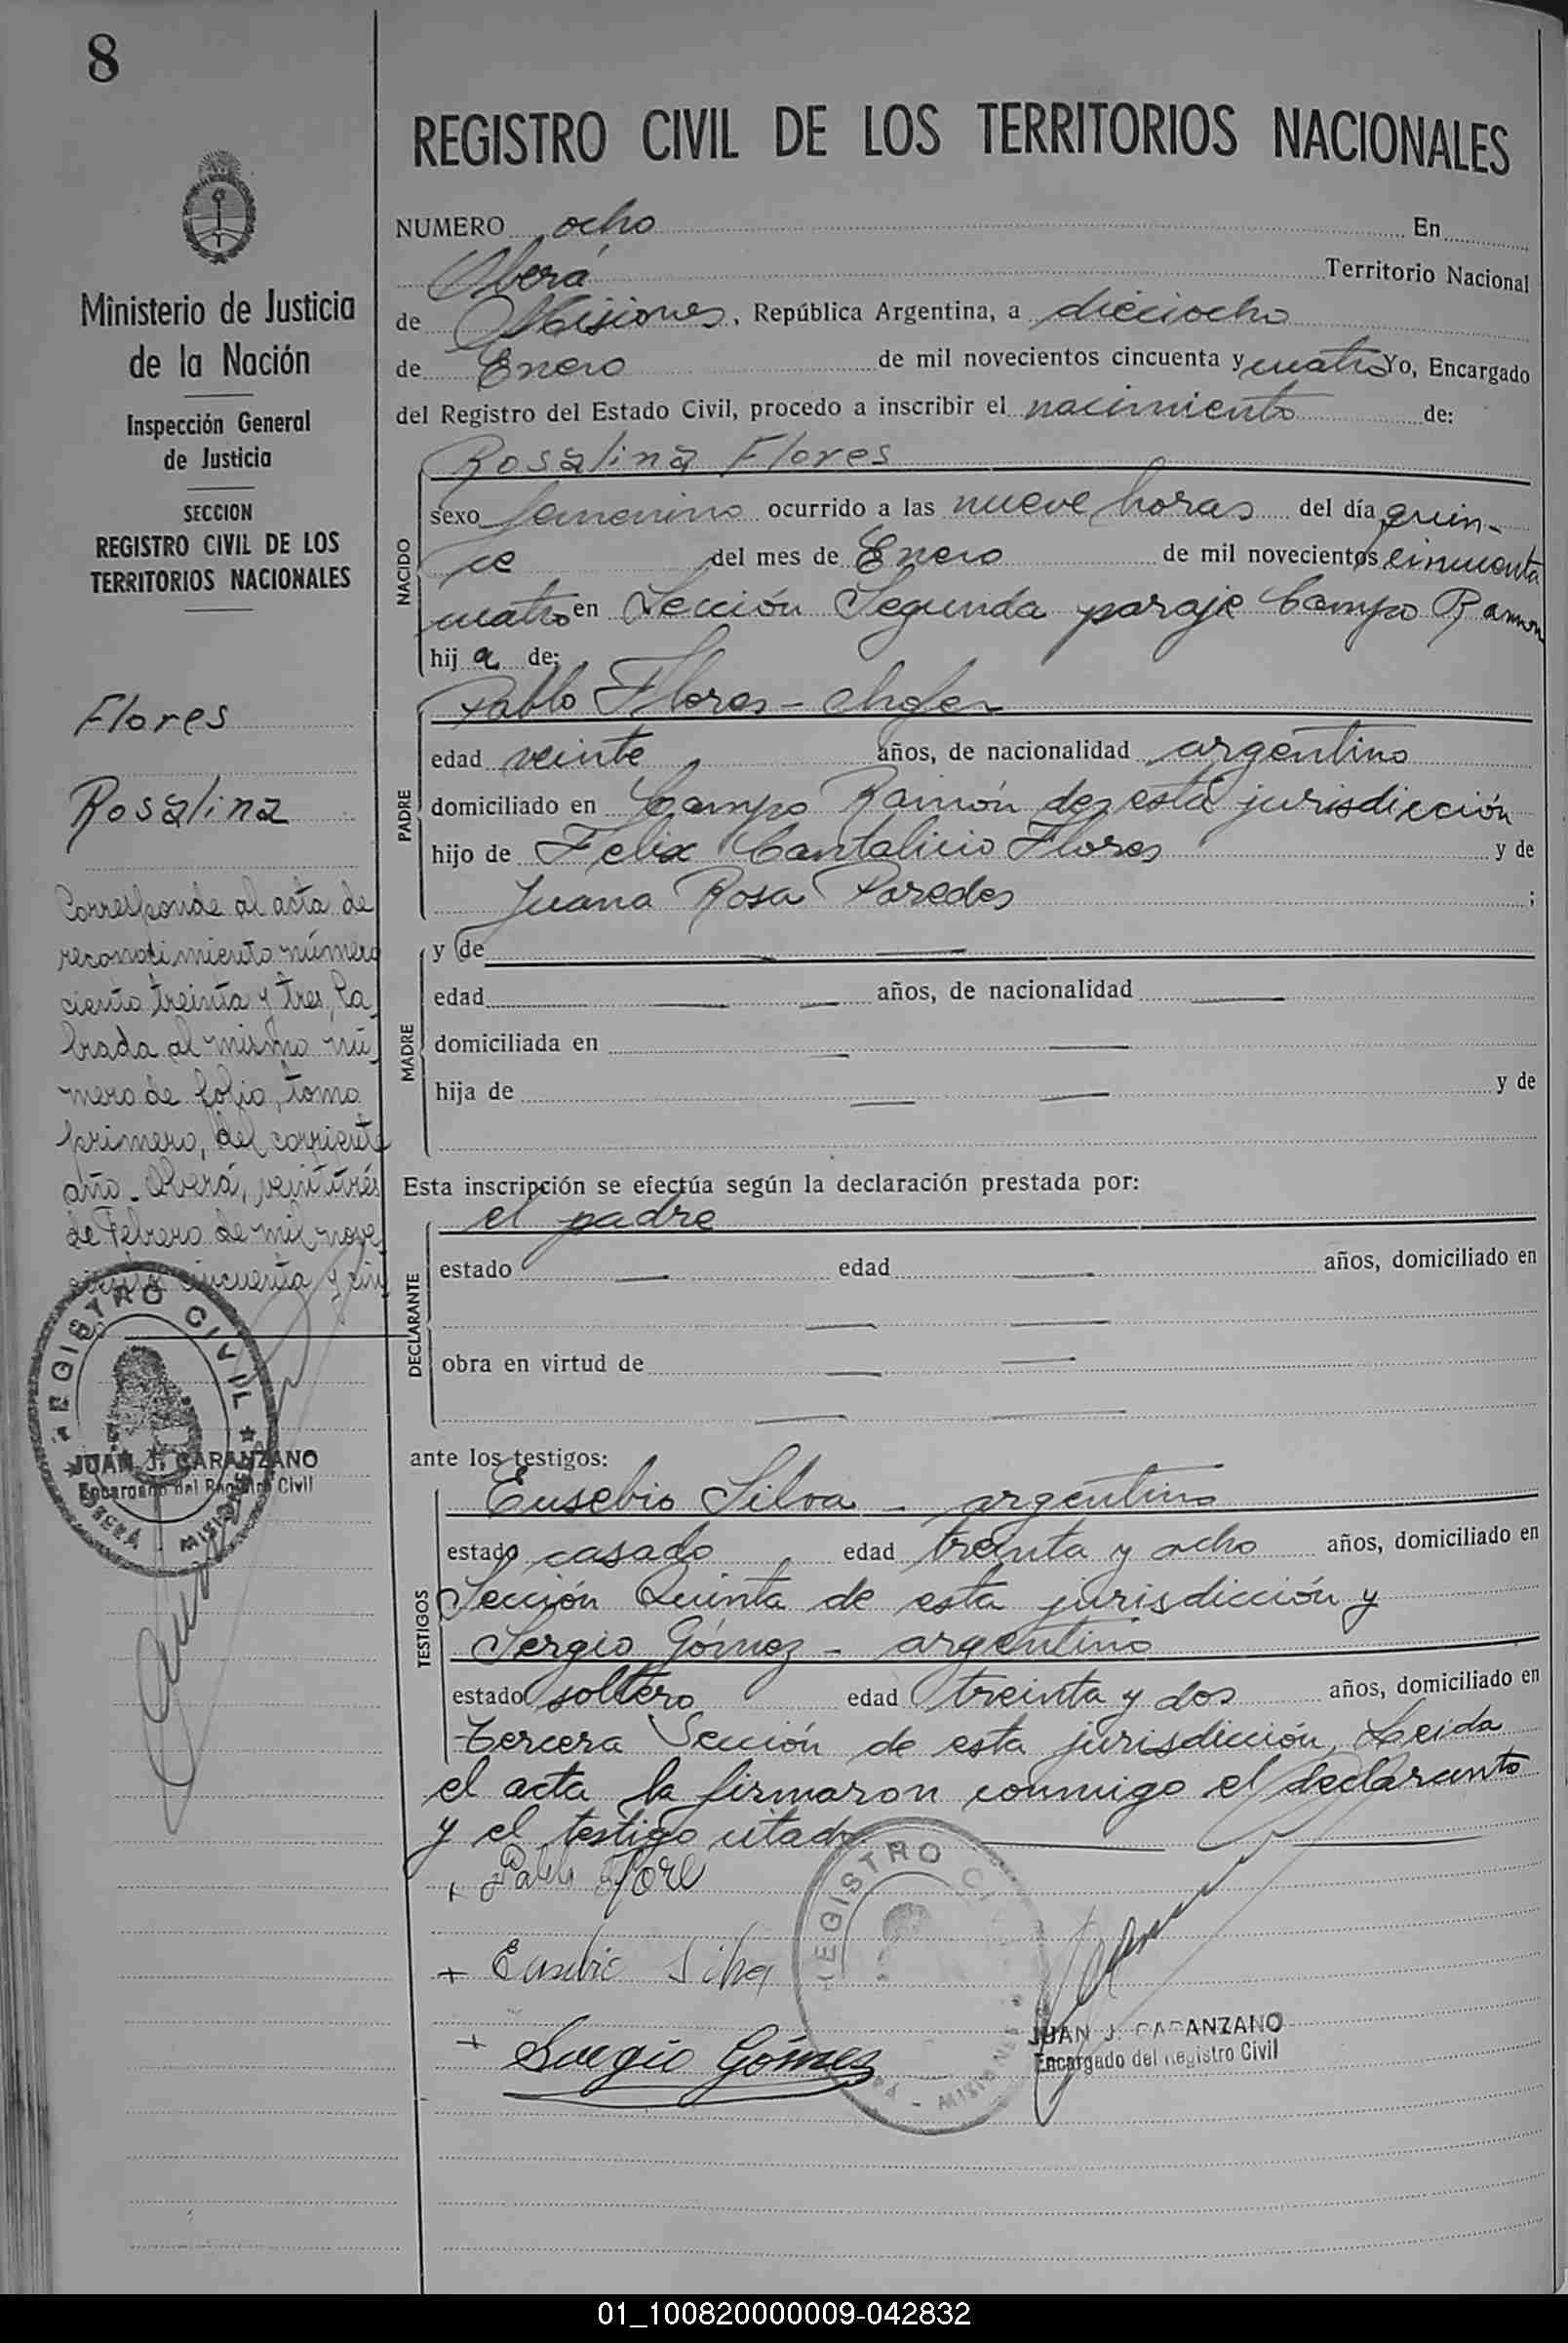 8
REGISTRO CIVIL DE LOS TERRITORIOS NACIONALES
Ministerio de Justicia
de la Nación
Inspección General
de Justicia
SECCION
REGISTRO CIVIL DE LOS
TERRITORIOS NACIONALES
Flores
Rosalina
Corresponde al acta de
reconocimiento número
ciento treinta y tres, la
brada al mismo nú
mero de folio, tomo
primero, del corriente
año. Oberá, veintitrés
de Febrero de mil nove
cientos cincuenta y cin
co
REGISTRO CIVIL
OBERÁ - MISIONES
JUAN J. CARANZANO
Encargado del Registro Civil
NUMERO ocho En
Oberá Territorio Nacional
de Misiones, República Argentina, a dieciocho
de Enero de mil novecientos cincuenta y cuatro Yo, Encargado
del Registro del Estado Civil, procedo a inscribir el nacimiento de:
Rosalina Flores
NACIDO
sexo femenino ocurrido a las nueve horas del día quin-
ce del mes de Enero de mil novecientos cincuenta
cuatro en Sección Segunda paraje Campo Ramon
hij a de:
Pablo Flores - chofer
PADRE
edad veinte años, de nacionalidad argentino
domiciliado en Campo Ramón de esta jurisdicción
hijo de Felix Cantalicio Flores y de
Juana Rosa Paredes ;
MADRE
y de
edad años, de nacionalidad
domiciliada en
hija de y de
Esta inscripción se efectúa según la declaración prestada por:
el padre
DECLARANTE
estado edad años, domiciliado en
obra en virtud de
ante los testigos:
TESTIGOS
Eusebio Silva - argentino
estado casado edad treinta y ocho años, domiciliado en
Sección Quinta de esta jurisdicción y
Sergio Gómez - argentino
estado soltero edad treinta y dos años, domiciliado en
tercera Sección de esta jurisdicción, Leida
el acta la firmaron conmigo el declarante
y el testigo citado.
+ Pablo Flore
+ Eusebio Silva
+ Sergio Gómez
REGISTRO CI
MISIONES
JUAN J. CARANZANO
Encargado del Registro Civil
01_100820000009-042832